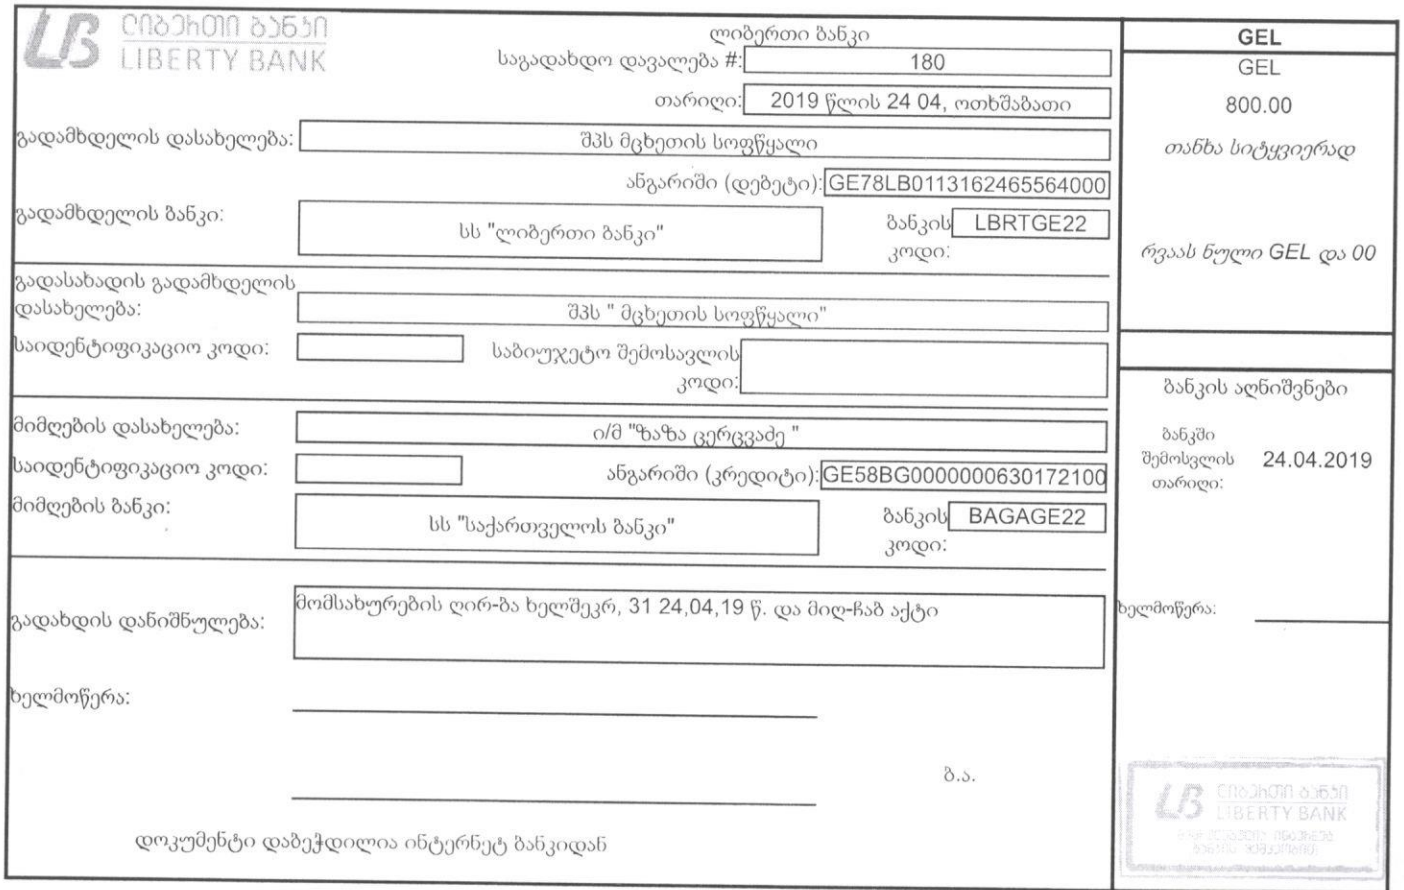 ლიბერთი ბანკი
LIBERTY BANK
ლიბერთი ბანკი
საგადახდო დავალება #: 180
თარიღი: 2019 წლის 24 04, ოთხშაბათი
გადამხდელის დასახელება: შპს მცხეთის სოფწყალი
ანგარიში (დებეტი): GE78LB0113162465564000
გადამხდელის ბანკი: სს "ლიბერთი ბანკი" ბანკის კოდი: LBRTGE22
გადასახადის გადამხდელის
დასახელება: შპს " მცხეთის სოფწყალი"
საიდენტიფიკაციო კოდი: საბიუჯეტო შემოსავლის
კოდი:
მიმღების დასახელება: ი/მ "ზაზა ცერცვაძე "
საიდენტიფიკაციო კოდი: ანგარიში (კრედიტი): GE58BG0000000630172100
მიმღების ბანკი: სს "საქართველოს ბანკი" ბანკის კოდი: BAGAGE22
გადახდის დანიშნულება: მომსახურების ღირ-ბა ხელშეკრ, 31 24,04,19 წ. და მიღ-ჩაბ აქტი
ხელმოწერა:
ბ.ა.
დოკუმენტი დაბეჭდილია ინტერნეტ ბანკიდან
GEL
GEL
800.00
თანხა სიტყვიერად
რვაას ნული GEL და 00
ბანკის აღნიშვნები
ბანკში
შემოსვლის 24.04.2019
თარიღი:
ხელმოწერა:
ლიბერთი ბანკი
LIBERTY BANK